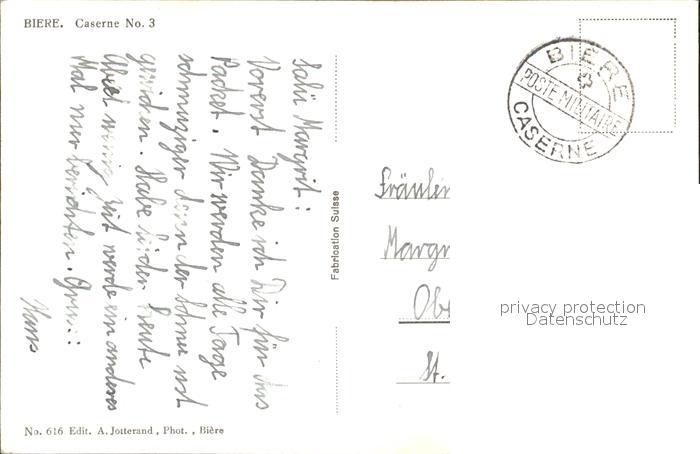 BIERE. Caserne No. 3
Salü Margrit!
Vorerst Danke ich Dir für das
Packet. Wir werden alle Tage
schmutziger denn der Schnee ist
gewichen. Habe leider heute
wenig Zeit werde ein anderes
Mal mehr berichten. Gruss:
Hans
Fabrication Suisse
BIÈRE
POSTE MILITAIRE
CASERNE
Fräulein
Margr
Ob
St.
privacy protection
Datenschutz
No. 616 Edit. A. Jotterand, Phot., Bière